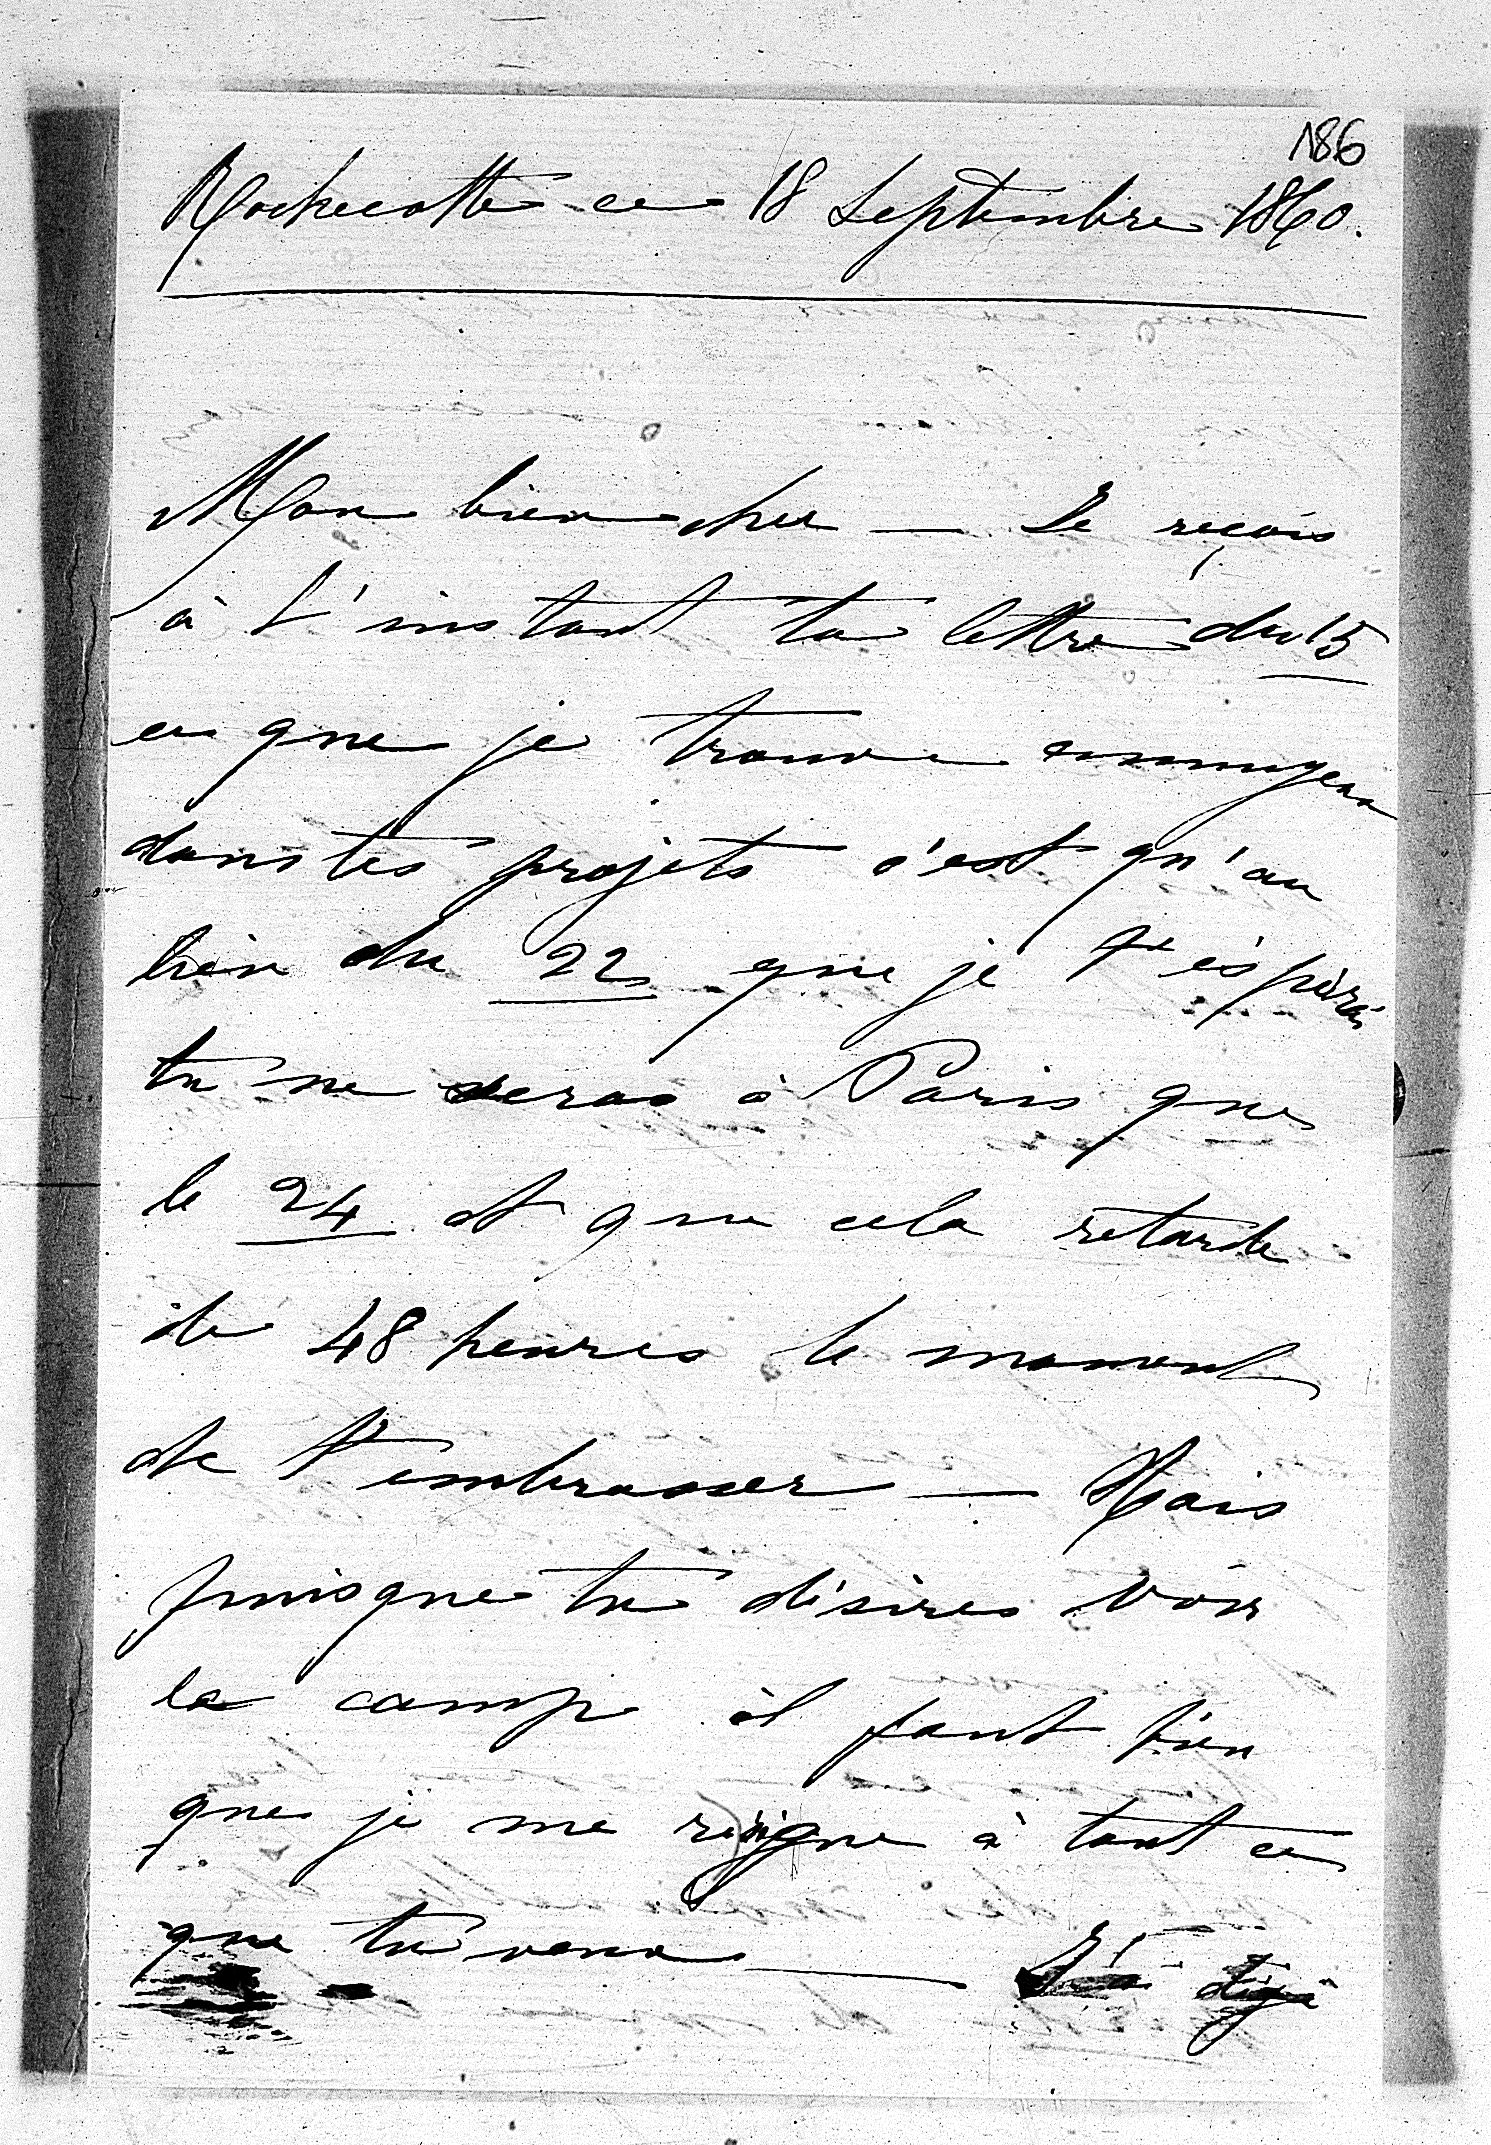 186
Rochecotte ce 18 Septembre 1860.
Mon bien cher — Je reçois
à l'instant ta lettre du 15
ce que je trouve ennuyeux
dans tes projets c'est qu'au
lieu du 22 que je t'espérais
tu ne seras à Paris que
le 24 et que cela retarde
de 48 heures le moment
de t'embrasser — Mais
puisque tu désires voir
le camp il faut bien
que je me résigne à tout ce
que tu veux — J'ai déjà